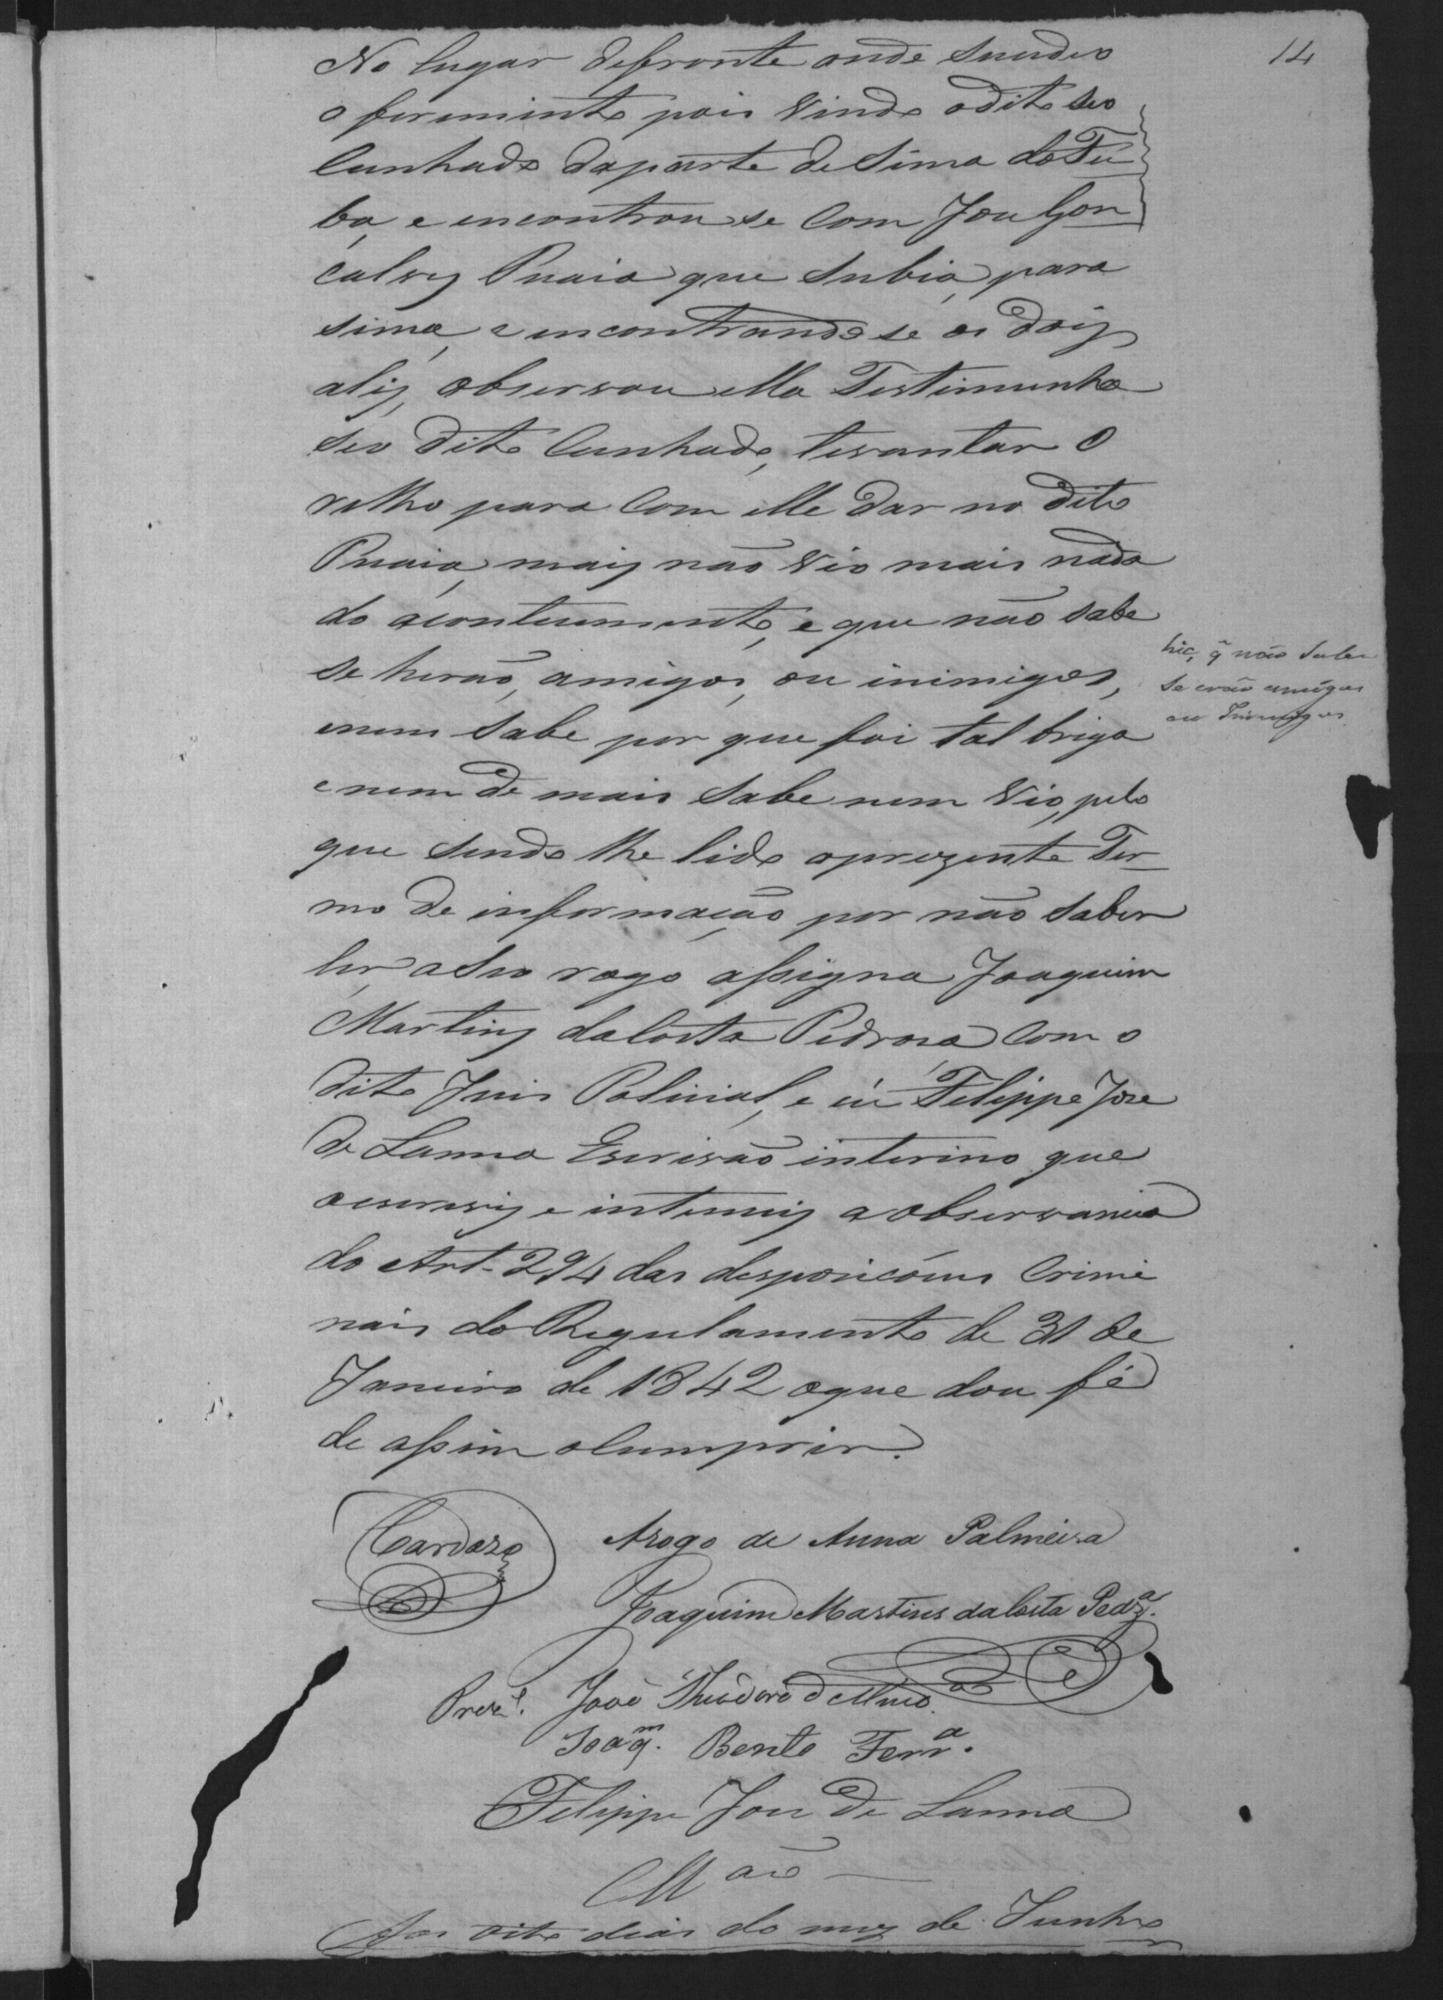 14
No lugar defronte onde sucudeo
o ferimento pois vindo o dito seo
Cunhado da parte de Sima do Tu
ba, e encontrou se Com Jose Gon
calves Puaia que Subia, para
sima, e encontrando se os dois
alis, observou ella Testimunha
seo dito Cunhado, levantar O
relho para Com elle dar no dito
Puaia, mais não vio mais nada
do acontecimento, e que não sabe
se herão, amigos, ou inimigos,
enem Sabe por que foi tal briga
e nem de mais Sabe nem Vio, pelo
que sendo lhe lido o prezente Ter
mo de informação por não Saber
ler, a Seo rogo assigna Joaquim
Martins da Costa Pedrosa Com o
dito Juis Policial, e eú Felippe Jose
de Lanna Escrivão interino que
oescrevy e intimey a observancia
do Art. 294 das desposicóens Crimi
nais do Regulamento de 31 de
Janeiro de 1842 oque dou fé
de assim o Cumprir.
hic, q̃ não sabe
se erão amigos
ou Inimigos
Cardozo
Arogo de Anna Palmeira
Joaquim Martins da Costa Pedrª.
José Theodoro
Joaqᵐ. Bento Ferrª.
Felippe Jose de Lanna
Aos oito dias do mez de Junho